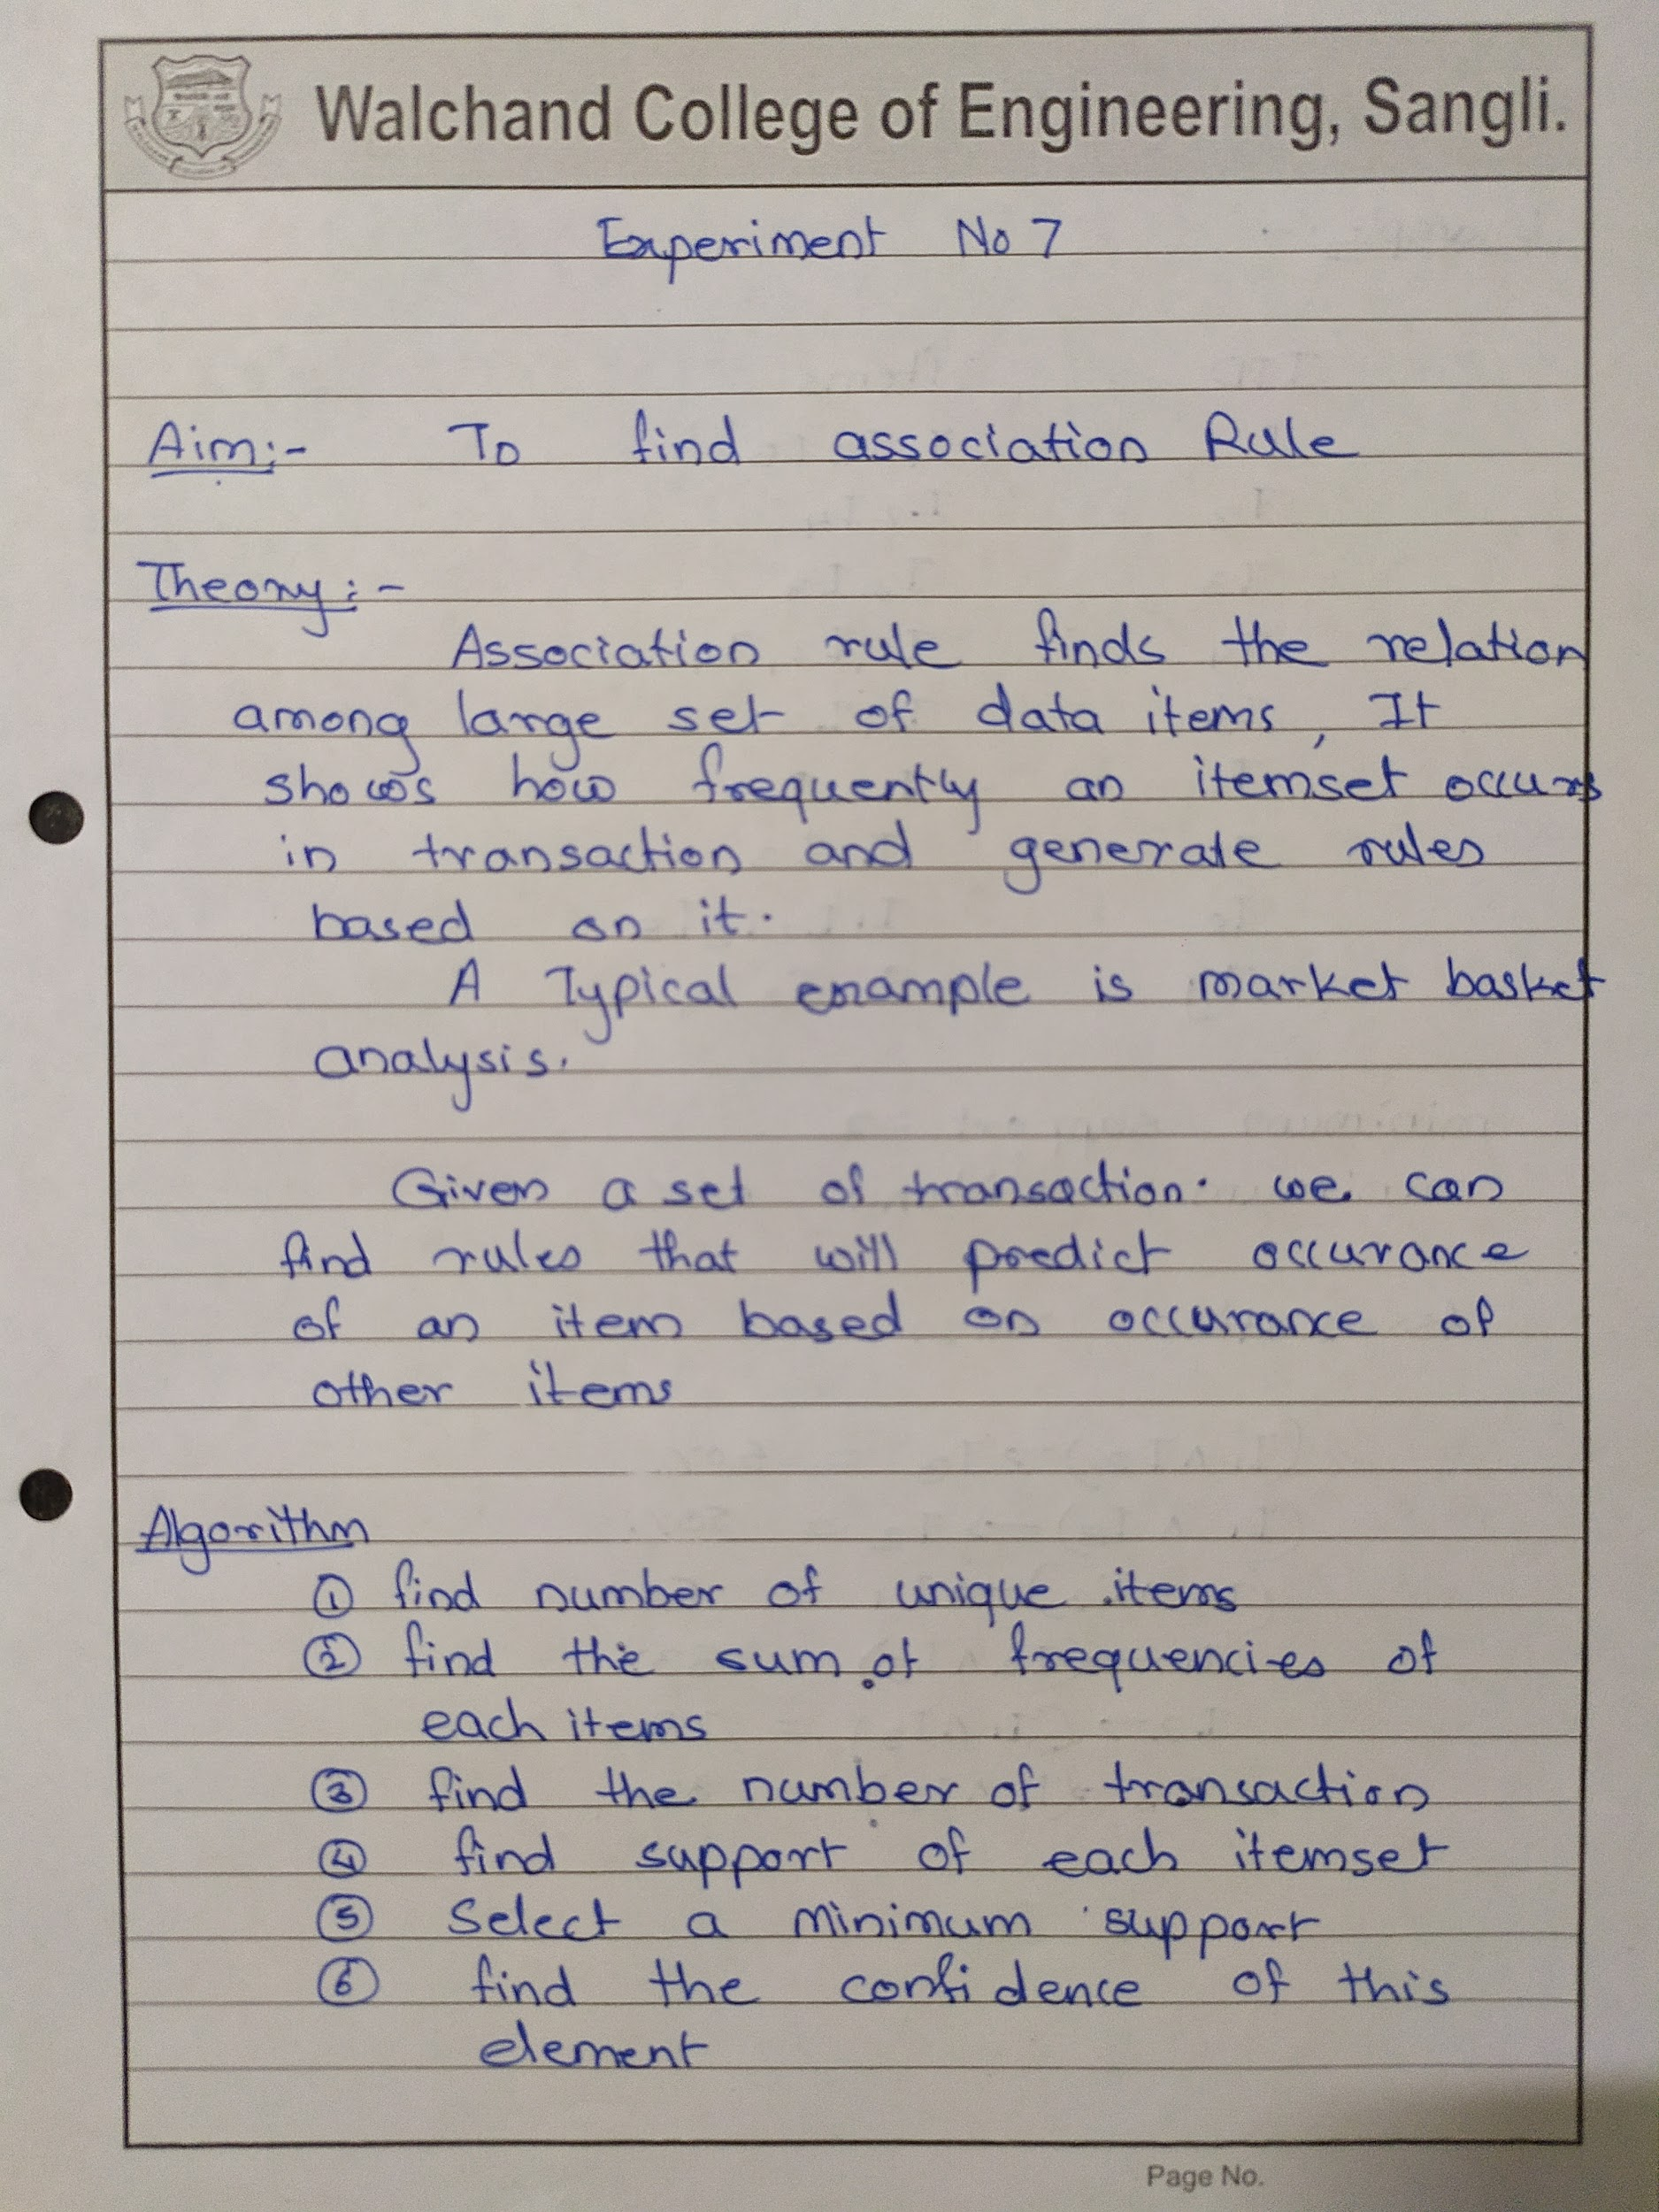 Walchand College of Engineering, Sangli.
Experiment No 7
Aim:- To find association Rule
Theory:-
Association rule finds the relation
among large set of data items, It
shows how frequently an itemset occurs
in transaction and generate rules
based on it.
A Typical example is market basket
analysis.
Given a set of transaction. we can
find rules that will predict occurance
of an item based on occurance of
other items
Algorithm
① find number of unique items
② find the sum of frequencies of
each items
③ find the number of transaction
④ find support of each itemset
⑤ Select a minimum support
⑥ find the confidence of this
element
Page No.